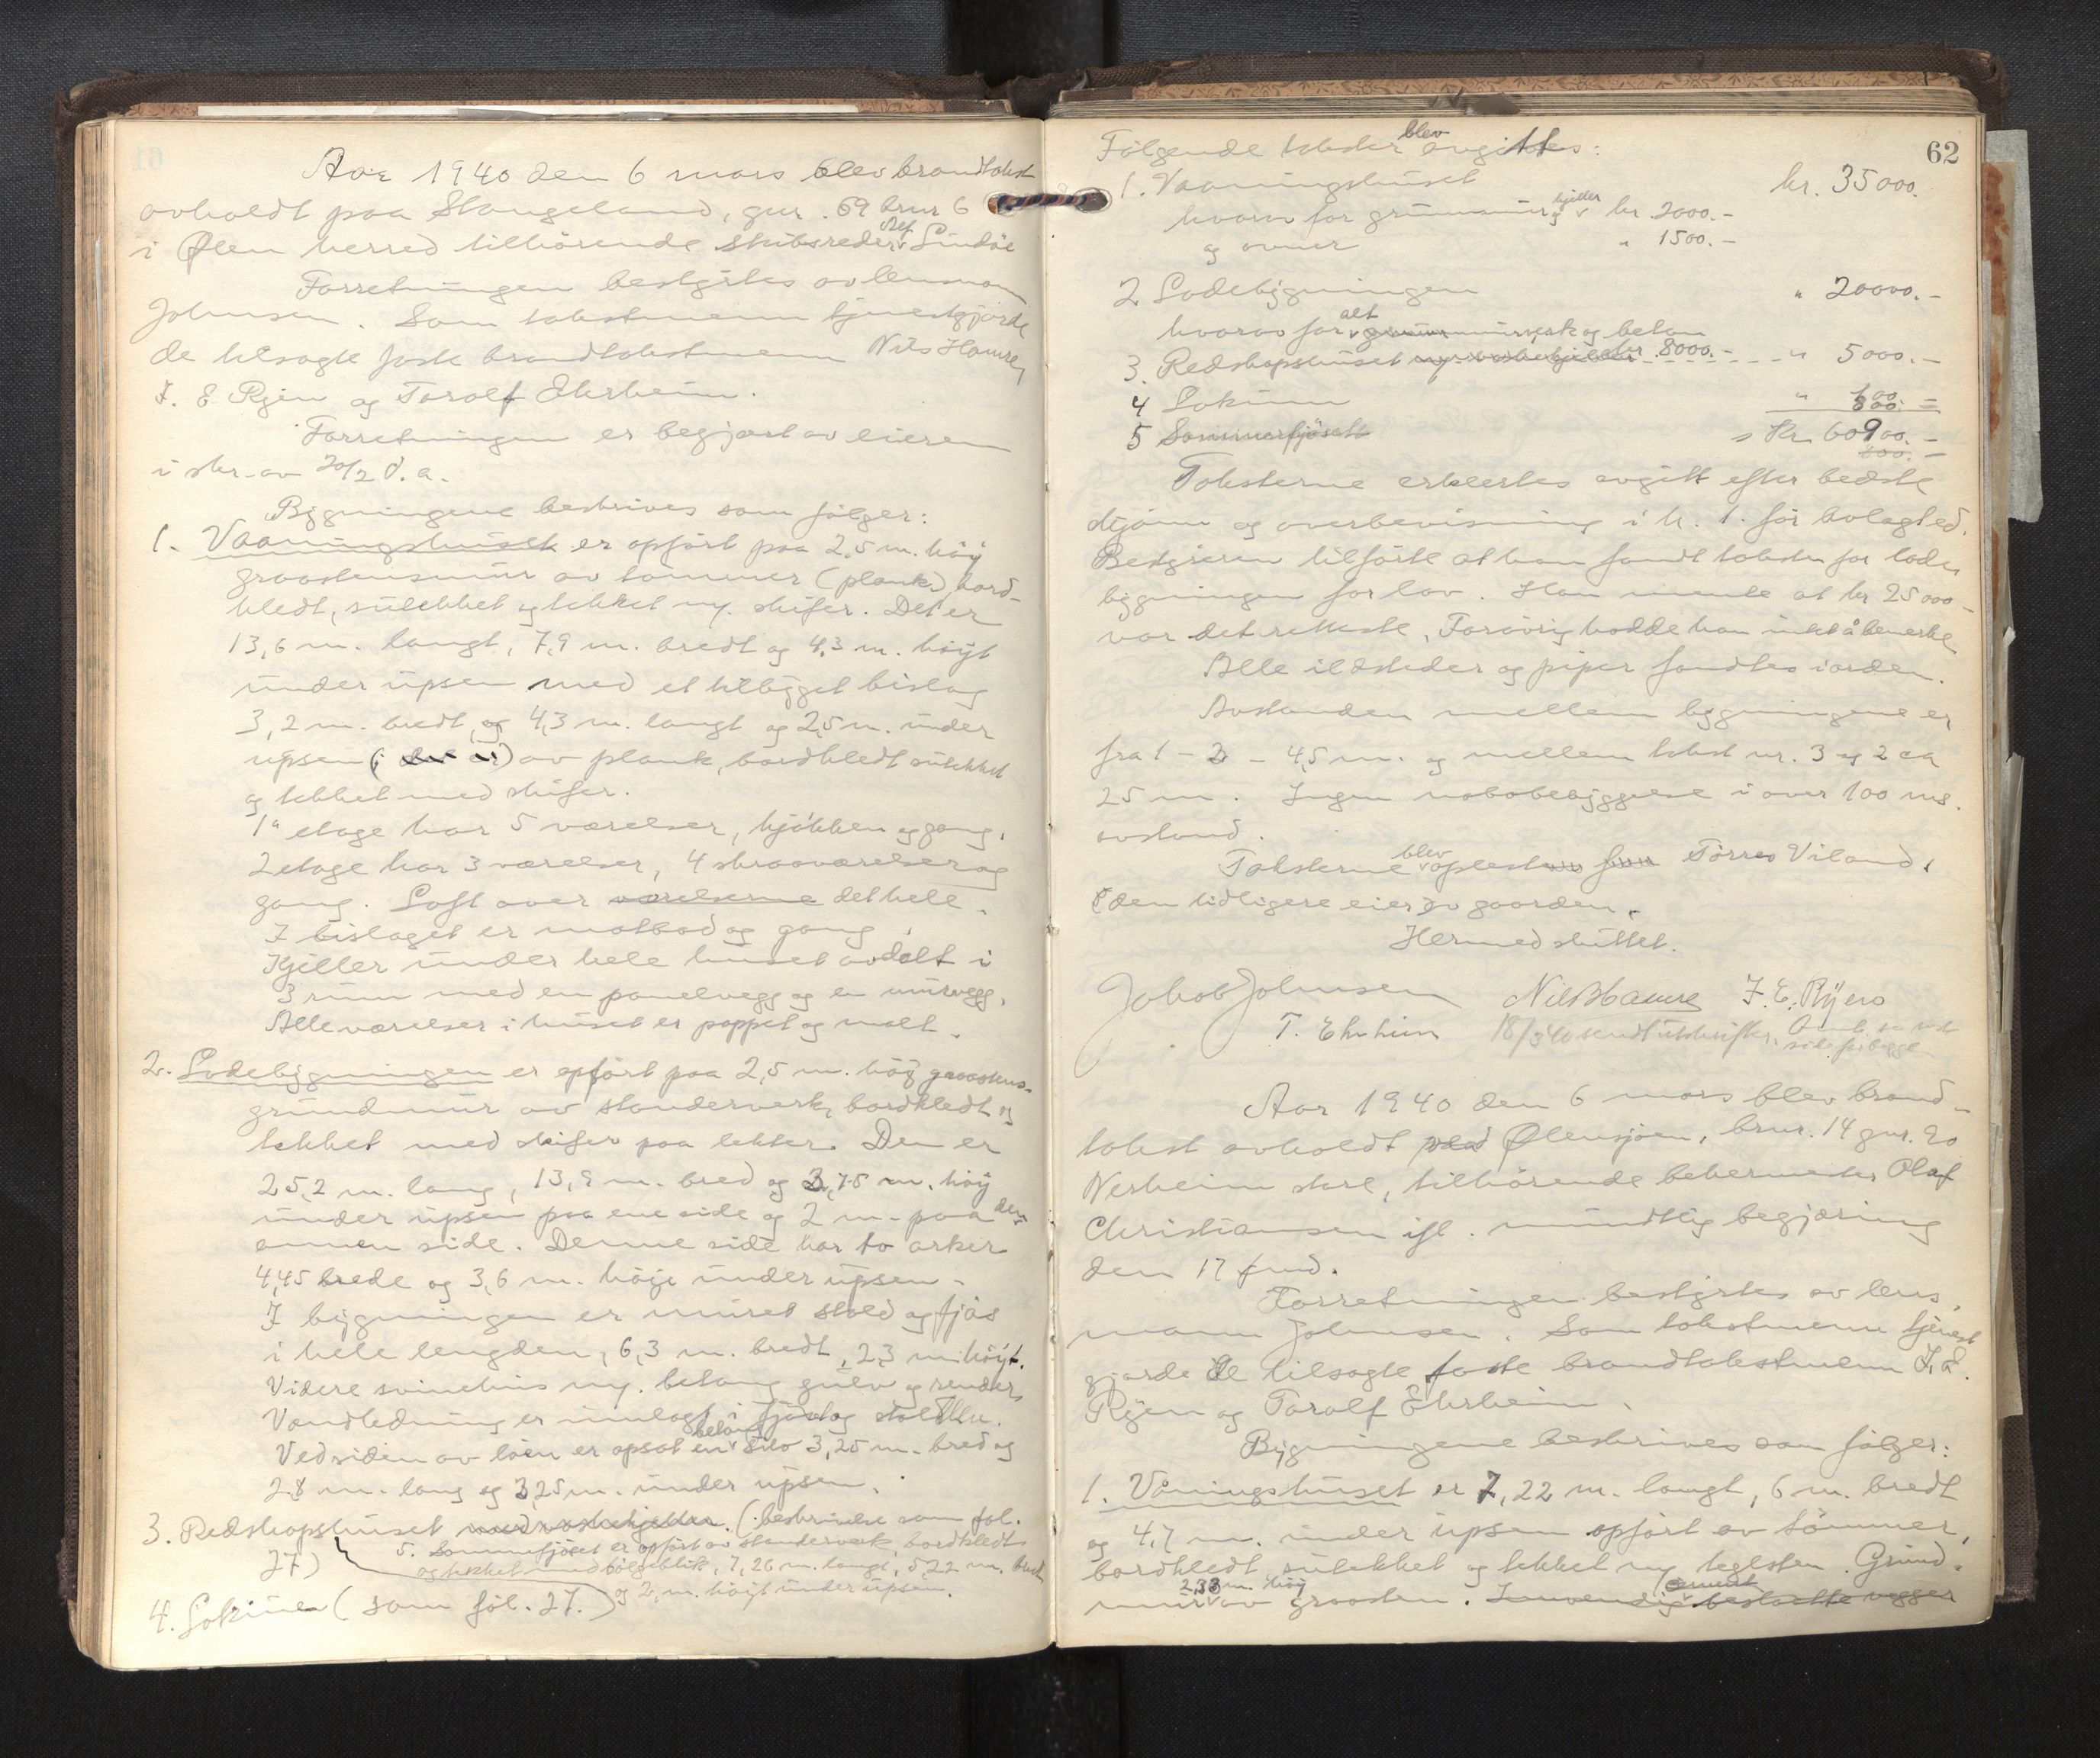 Aar 1940 den 6 mars blev brandtakst
avholdt paa Stangeland, gnr. 69 brnr 6
i Ølen herred tilhörende skibsreder Lindøe
Forretningen bestyrtes av lensmann
Johnsen. Som takstmenn tjenestgjorde
de tilsagte faste brandtakstmenn Nils Hamre,
J. E Ryen og Torolf Ehrheim.
Forretningen er begjært av eieren
i skr. av 20/2 d. a.
Bygningene beskrives som følger:
1. Vaaningshuset er opført paa 2,5 m. høy
graastensmur av tømmer (plank) bord-
kledt, sutekket og tekket m/. skifer. Det er
13,6 m. langt, 7,9 m. bredt og 4,3 m. høyt
under upsen med et tilbygget bislag
3,2 m. bredt, og 4,3 m. langt og 2,5 m. under
upsen av plank, bordkledt sutekket
og tekket med skifer.
1ste etage har 5 værelser, kjøkken og gang.
2 etage har 3 værelser, 4 skraaværelser og
gang. Loft over værelserne det hele.
I bislaget er matbod og gang.
Kjeller under hele huset avdelt i
3 rum med en panelvegg og en murvegg.
Alle værelser i huset er pappet og malt.
2. Lodebygningen er opført paa 2,5 m. høy graastens-
grundmur av standerverk, bordkledt og
tekket med skifer paa lekter. Den er
25,2 m. lang, 13,9 m. bred og 3,75 m. høy
under upsen paa ene side og 2 m. paa den
annen side. Denne side har to arker
4,45 brede og 3,6 m. høye under upsen.
I bygningen er muret stald og fjøs
i hele lengden, 6,3 m. bredt, 2,3 m. høyt.
Videre svinehus m/. betong gulv og render,
Vandledning er innlagt i fjøs og stallen.
Ved siden av løen er opsat en betong silo 3,25 m. bred og
2,8 m. lang og 3,25 m. under upsen.
3. Redskapshuset med vaskekjeller. (beskrivelse som fol.
27)
5. Sommerfjøset er opført av standerverk, bordkledt
og tekket med bølgeblikk, 7,26 m. langt, 5,22 m. bredt
og 2, m. høyt under upsen.
4. Lokum (som fol. 27.)
62
Følgende takster blev avgitt:
1. Vaaningshuset kr. 35000.
hvorav for grunnmur og kjeller kr. 2000.-
og ovner " 1500.-
2 Lodebygningen " 20000.-
hvorav for alt murverk og beton
kr 8000.-
3. Redskapshuset " 5000.-
4 Lokum
5 Sommerfjøset
Kr. 60900.-
800.-
Taksterne erklertes avgitt efter bedste
skjønn og overbevisning i h. t. før avlagt ed.
Bestyreren tilførte at han fandt taksten for lode-
bygningen for lav. Han mente at kr 25000.-
var det retteste. Forøvrig hadde han intet å bemerke
Alle ildsteder og piper fandtes i orden.
Avstanden mellem bygningene er
fra 1 - 2 - 4,5 m. og mellem takst nr. 3 og 2 ca
25 m. Ingen nabobebyggelse i over 100 ms.
avstand.
Taksterne blev oplest for Tørres Viland,
den tidligere eier av gaarden.
Hermed sluttet.
Jakob Johnsen Nils Hamre J. E. Ryen
T. Ehrheim 18/3 40 sendt utskrifter.
Aar 1940 den 6 mars blev brand-
takst avholdt ved Ølensjøen, brnr. 14 gnr. 20
Nerheim store, tilhörende bakermester Olaf
Christiansen ifl. mundtlig begjæring
den 17 f.md.
Forretningen bestyrtes av lens-
mann Johnsen. Som takstmenn tjenest
gjorde de tilsagte faste brandtakstmenn J. E.
Ryen og Torolf Ehrheim.
Bygningene beskrives som følger:
1. Våningshuset er 7,22 m. langt, 6 m. bredt
og 4,7 m. under upsen opført av tømmer,
bordkledt sutekket og tekket m/ teglsten. Grund-
mur 2,33 m. høy av graasten. Innvendig cement beslaatte vegger